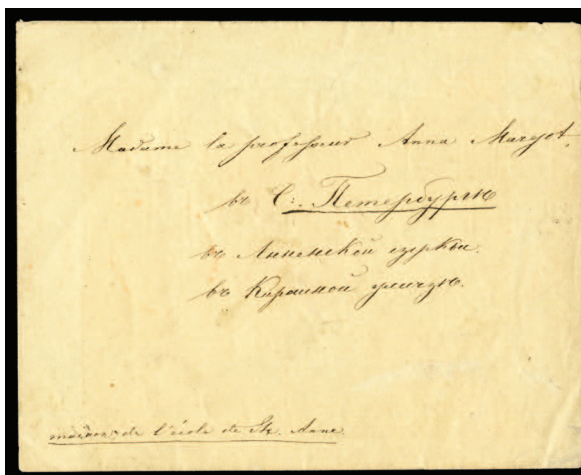 Madame la professeur Anna Margot,
въ С: Петербургѣ
въ Анненской церкви.
въ Кирочной улицѣ.
maison de l'école de St. Anne.